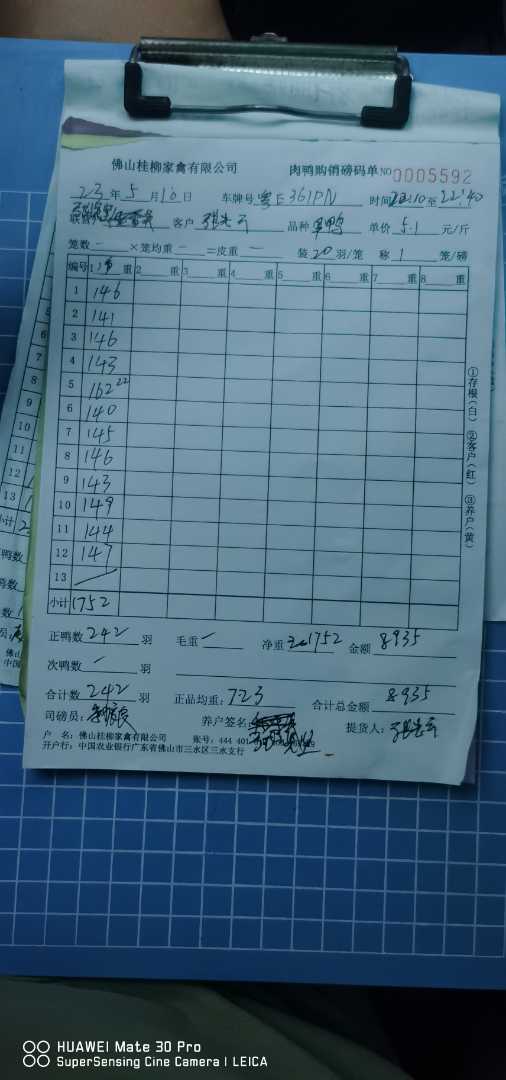 佛山桂柳家禽有限公司 肉鸭购销磅码单 NO 0005592
23年5月10日 车牌号 粤E361PN 时间22:10至22:40
客户 张 品种 鸭 单价 5.1 元/斤
笼数 - ×笼均重 - =皮重 - 装20羽/笼 称 1 笼/磅
编号 1 重 2 重 3 重 4 重 5 重 6 重 7 重 8 重
1 146
2 141
3 146
4 143
5 162 22
6 140
7 145
8 146
9 143
10 149
11 144
12 147
13
小计 1752
①存根(白) ②客户(红) ③养户(黄)
正鸭数 242 羽 毛重 - 净重 1752 金额 8935
次鸭数 - 羽
合计数 242 羽 正品均重: 7.23 合计总金额 8935
司磅员: 养户签名: 提货人: 张
户 名: 佛山桂柳家禽有限公司 账号: 444 401
开户行: 中国农业银行广东省佛山市三水区三水支行
5
6
7
8
9
10
11
12
13
小计
鸭数
HUAWEI Mate 30 Pro
SuperSensing Cine Camera | LEICA